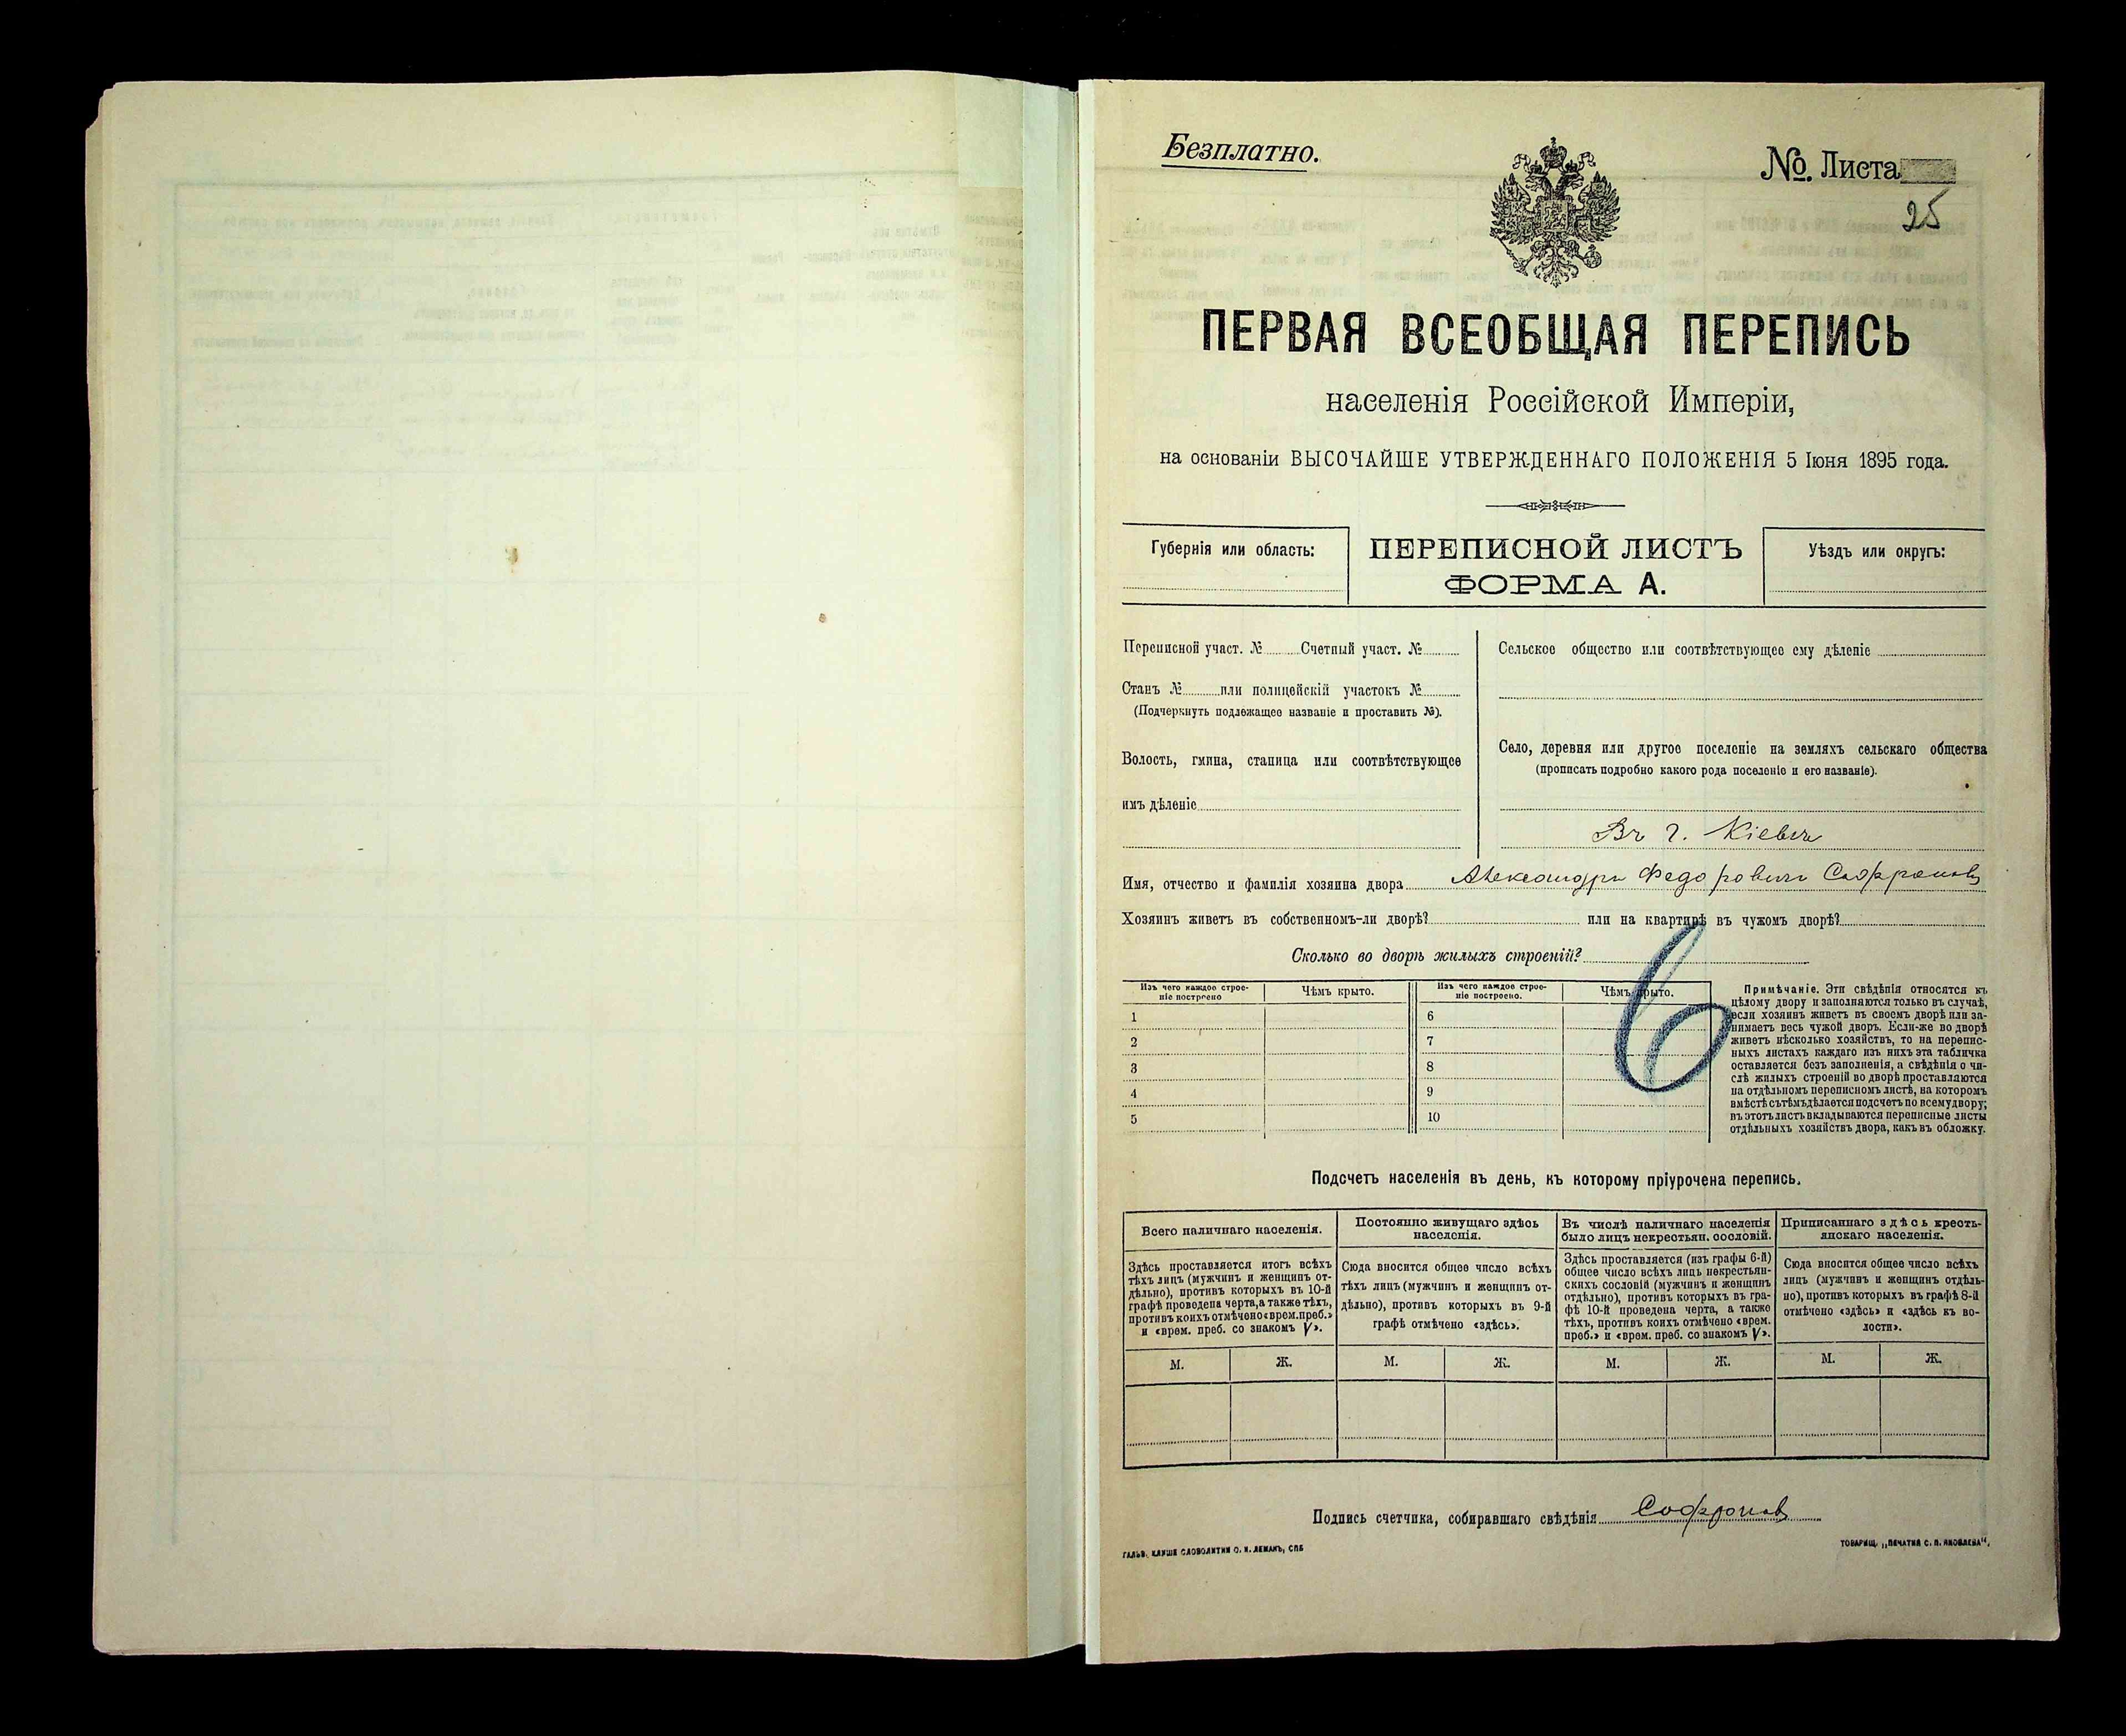 Безплатно.
№. Листа
25
ПЕРВАЯ ВСЕОБЩАЯ ПЕРЕПИСЬ
населенія Россійской Имперіи,
на основаніи ВЫСОЧАЙШЕ УТВЕРЖДЕННАГО ПОЛОЖЕНІЯ 5 Іюня 1895 года.
Губернія или область:
ПЕРЕПИСНОЙ ЛИСТЪ
ФОРМА А.
Уѣздъ или округъ:
Переписной участ. № Счетный участ. №
Станъ № или полицейскій участокъ №
(Подчеркнуть подлежащее названіе и проставить №).
Волость, гмина, станица или соотвѣтствующее
имъ дѣленіе
Сельское общество или соотвѣтствующее ему дѣленіе
Село, деревня или другое поселеніе на земляхъ сельскаго общества
(прописать подробно какого рода поселеніе и его названіе).
Въ г. Кіевѣ
Имя, отчество и фамилія хозяина двора Александръ Федоровичъ Софроновъ
Хозяинъ живетъ въ собственномъ-ли дворѣ? или на квартирѣ въ чужомъ дворѣ?
Сколько во дворѣ жилыхъ строеній?
6
Изъ чего каждое строе-
ніе построено
Чѣмъ крыто.
Изъ чего каждое строе-
ніе построено.
Чѣмъ крыто.
1 6
2 7
3 8
4 9
5 10
Примѣчаніе. Эти свѣдѣнія относятся къ
цѣлому двору и заполняются только въ случаѣ,
если хозяинъ живетъ въ своемъ дворѣ или за-
нимаетъ весь чужой дворъ. Если-же во дворѣ
живетъ нѣсколько хозяйствъ, то на перепис-
ныхъ листахъ каждаго изъ нихъ эта табличка
оставляется безъ заполненія, а свѣдѣнія о чи-
слѣ жилыхъ строеній во дворѣ проставляются
на отдѣльномъ переписномъ листѣ, на которомъ
вмѣстѣ съ тѣмъ дѣлается подсчетъ по всему двору;
въ этотъ листъ вкладываются переписные листы
отдѣльныхъ хозяйствъ двора, какъ въ обложку.
Подсчетъ населенія въ день, къ которому пріурочена перепись.
Всего наличнаго населенія.
Здѣсь проставляется итогъ всѣхъ
тѣхъ лицъ (мужчинъ и женщинъ от-
дѣльно), противъ которыхъ въ 10-й
графѣ проведена черта, а также тѣхъ,
противъ коихъ отмѣчено «врем. преб.»
и «врем. преб. со знакомъ V».
Постоянно живущаго здѣсь
населенія.
Сюда вносится общее число всѣхъ
тѣхъ лицъ (мужчинъ и женщинъ от-
дѣльно), противъ которыхъ въ 9-й
графѣ отмѣчено «здѣсь».
Въ числѣ наличнаго населенія
было лицъ некрестьян. сословій.
Здѣсь проставляется (изъ графы 6-й)
общее число всѣхъ лицъ некрестьян-
скихъ сословій (мужчинъ и женщинъ
отдѣльно), противъ которыхъ въ гра-
фѣ 10-й проведена черта, а также
тѣхъ, противъ коихъ отмѣчено «врем.
преб.» и «врем. преб. со знакомъ V».
Приписаннаго здѣсь кресть-
янскаго населенія.
Сюда вносится общее число всѣхъ
лицъ (мужчинъ и женщинъ отдѣль-
но), противъ которыхъ въ графѣ 8-й
отмѣчено «здѣсь» и «здѣсь къ во-
лости».
М. Ж. М. Ж. М. Ж. М. Ж.
Подпись счетчика, собиравшаго свѣдѣнія Софронов
ГАЛЬВ. КЛИШЕ СЛОВОЛИТНИ О. И. ЛЕМАНЪ, СПБ
ТОВАРИЩ. „ПЕЧАТНЯ С. П. ЯКОВЛЕВА“.